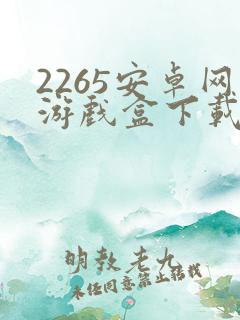 2265安卓网
游戏盒下载
明教老九
未经同意禁止转载